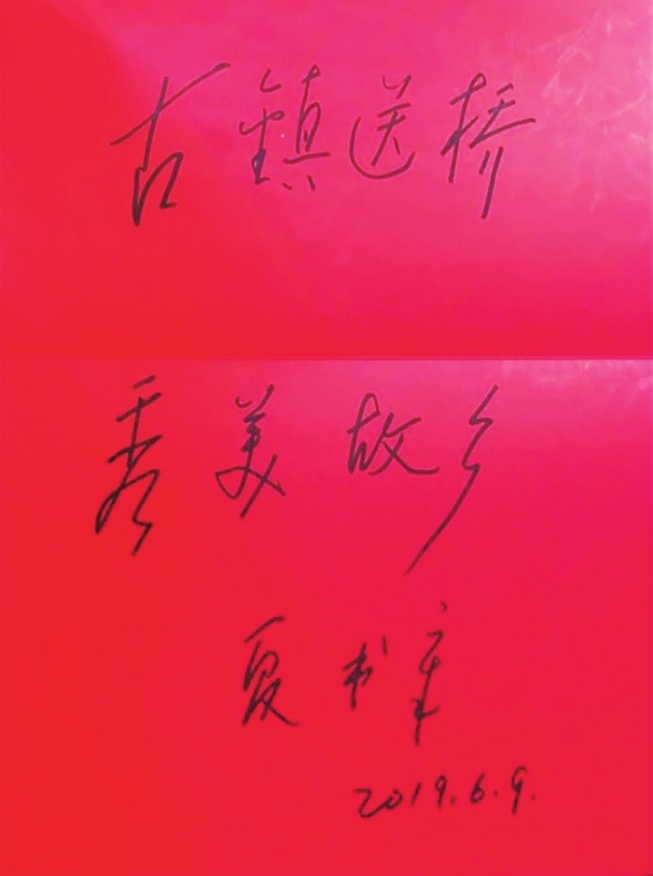 古鎮送桥
秀美故乡
夏书章
2019.6.9.